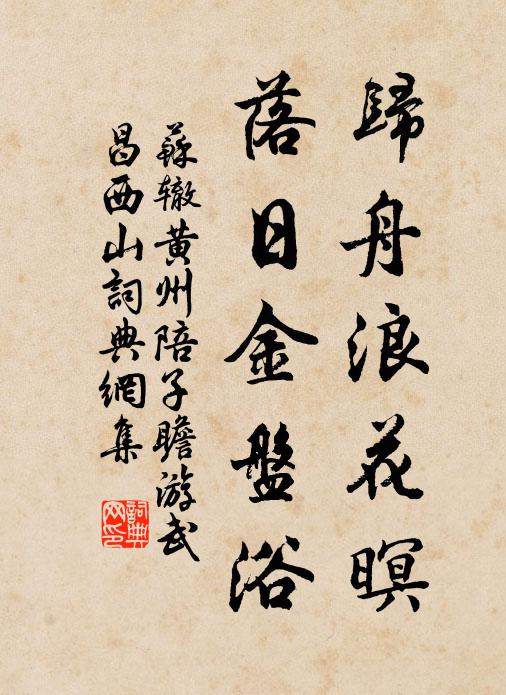 歸舟浪花暝
落日金盤浴
蘇辙黄州陪子瞻游武
昌西山詞典網集
詞典
网印